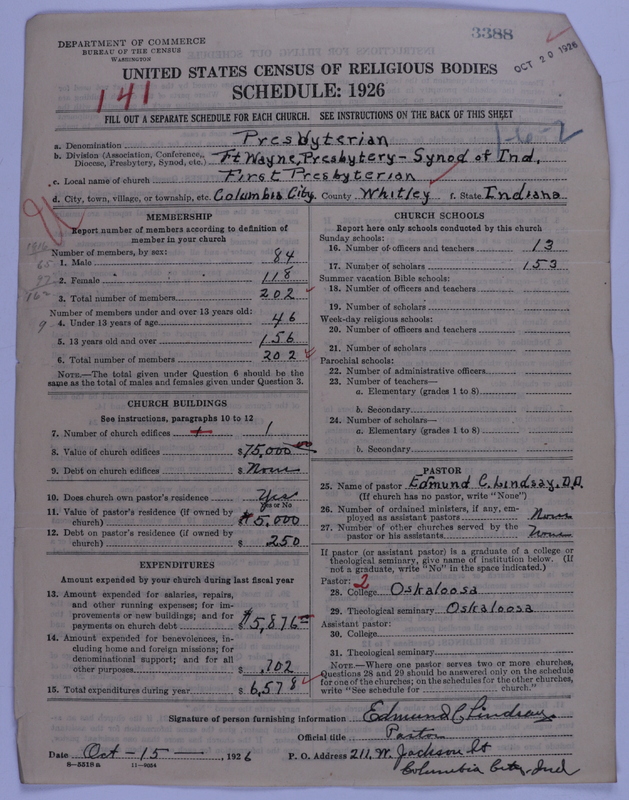 3388
OCT 20 1926
DEPARTMENT OF COMMERCE
BUREAU OF THE CENSUS
WASHINGTON
UNITED STATES CENSUS OF RELIGIOUS BODIES
141
SCHEDULE: 1926
FILL OUT A SEPARATE SCHEDULE FOR EACH CHURCH. SEE INSTRUCTIONS ON THE BACK OF THIS SHEET
1-6-2
a. Denomination Presbyterian
b. Division (Association, Conference, Diocese, Presbytery, Synod, etc.) Ft Wayne, Presbytery - Synod of Ind.
c. Local name of church First Presbyterian
d. City, town, village, or township, etc. Columbia City. County Whitley f. State Indiana
MEMBERSHIP
Report number of members according to definition of
member in your church
Number of members, by sex:
1. Male 84
2. Female 118
3. Total number of members 202
Number of members under and over 13 years old:
4. Under 13 years of age 46
5. 13 years old and over 156
6. Total number of members 202
NOTE.—The total given under Question 6 should be the
same as the total of males and females given under Question 3.
1916
65
97
162
9
CHURCH BUILDINGS
See instructions, paragraphs 10 to 12
7. Number of church edifices 1
8. Value of church edifices $75,000.00
9. Debt on church edifices $ None
10. Does church own pastor's residence Yes
Yes or No
11. Value of pastor's residence (if owned by
church) $5,000
12. Debt on pastor's residence (if owned by
church) $ 250
EXPENDITURES
Amount expended by your church during last fiscal year
13. Amount expended for salaries, repairs,
and other running expenses; for im-
provements or new buildings; and for
payments on church debt $5,876
14. Amount expended for benevolences, in-
cluding home and foreign missions; for
denominational support; and for all
other purposes $ 702
15. Total expenditures during year $ 6,578
CHURCH SCHOOLS
Report here only schools conducted by this church
Sunday schools:
16. Number of officers and teachers 13
17. Number of scholars 153
Summer vacation Bible schools:
18. Number of officers and teachers
19. Number of scholars
Week-day religious schools:
20. Number of officers and teachers
21. Number of scholars
Parochial schools:
22. Number of administrative officers
23. Number of teachers—
a. Elementary (grades 1 to 8)
b. Secondary
24. Number of scholars—
a. Elementary (grades 1 to 8)
b. Secondary
PASTOR
25. Name of pastor Edmund C. Lindsay, D.D.
(If church has no pastor, write "None")
26. Number of ordained ministers, if any, em-
ployed as assistant pastors None
27. Number of other churches served by the
pastor or his assistants None
If pastor (or assistant pastor) is a graduate of a college or
theological seminary, give name of institution below. (If
not a graduate, write "No" in the space indicated.)
Pastor: 2
28. College Oskaloosa
29. Theological seminary Oskaloosa
Assistant pastor:
30. College
31. Theological seminary
NOTE.—Where one pastor serves two or more churches,
Questions 28 and 29 should be answered only on the schedule
for one of the churches; on the schedules for the other churches,
write "See schedule for church."
Signature of person furnishing information Edmund C Lindsay
Official title Pastor
Date Oct - 15 —, 1926 P. O. Address 211, W. Jackson St
Columbia City, Ind
8—5518 a 11—9054